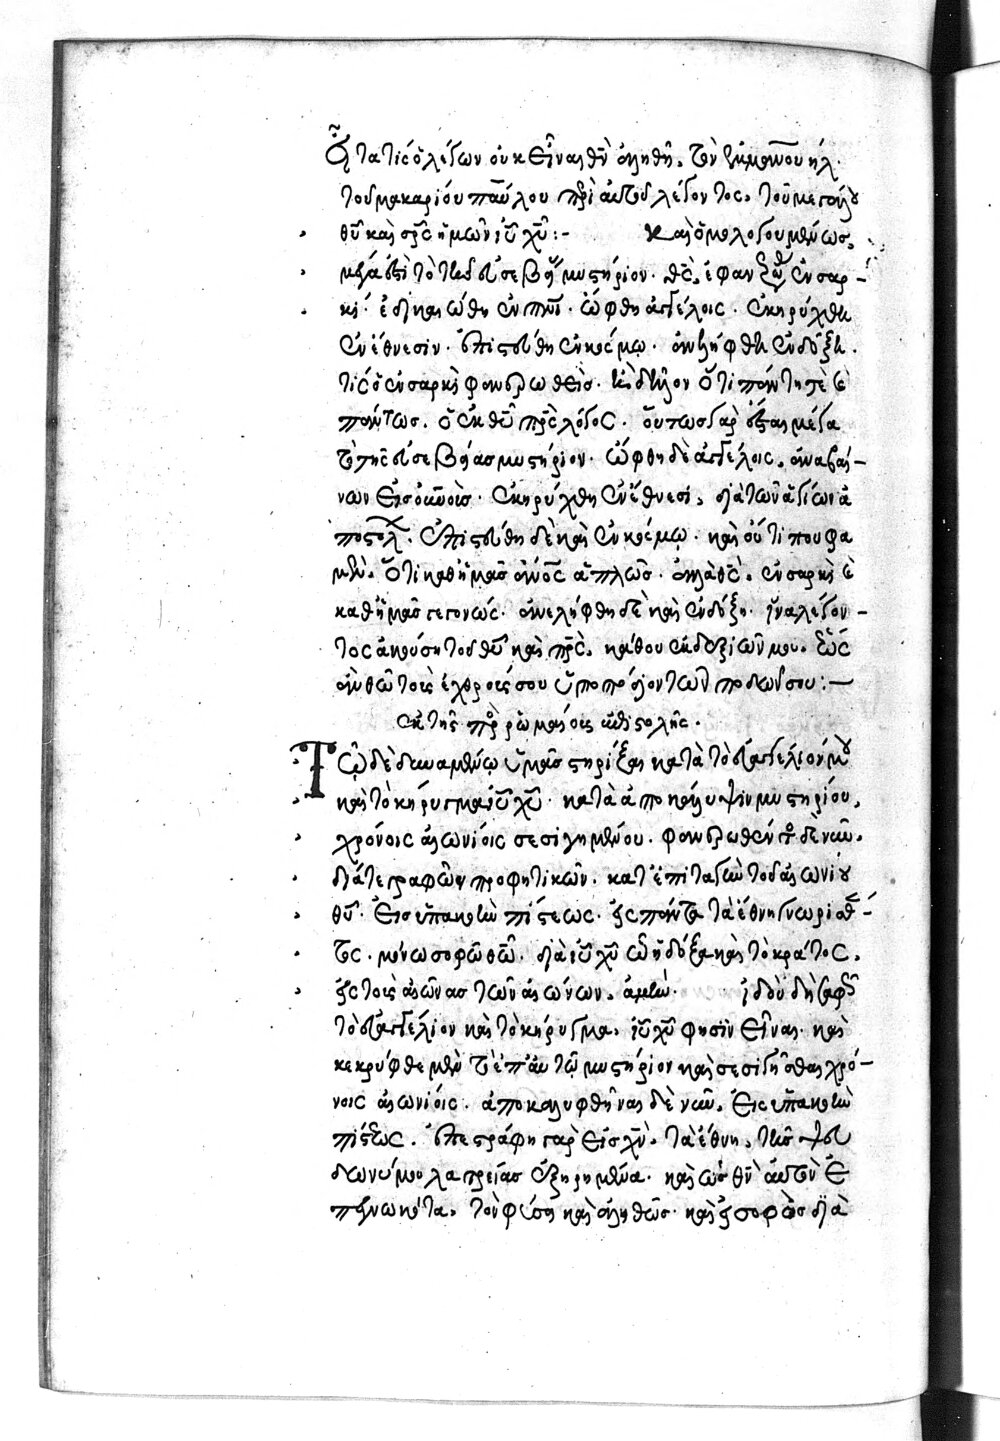 εἶτα τίς ὁ λέγων οὐκ εἶναι θν ἀληθῆ. τὸν
τοῦ μακαρίου παύλου περὶ αὐτοῦ λέγοντος. τοῦ μεγάλου
θυ καὶ σρς ἡμῶν ιυ χυ:- καὶ ὁμολογουμένως.
μέγα ἐστὶ τὸ τῆς εὐσεβείας μυστήριον. θς ἐφανερώθη ἐν σαρ-
κί. ἐδικαιώθη ἐν πνι. ὤφθη ἀγγέλοις. ἐκηρύχθη
ἐν ἔθνεσιν. ἐπιστεύθη ἐν κόσμῳ. ἀνελήφθη ἐν δόξῃ.
τίς ὁ ἐν σαρκὶ φανερωθείς. ἢ δῆλον ὅτι πάντη τὲ καὶ
πάντως. ὁ ἐκ θυ πρς λόγος. οὕτως γὰρ ἔσται μέγα
τὸ τῆς εὐσεβείας μυστήριον. ὤφθη δὲ ἀγγέλοις. ἀναβαί-
νων εἰς οὐνοὺς. ἐκηρύχθη ἐν ἔθνεσι. διὰ τῶν ἁγίων ἀ
ποστολ. ἐπιστεύθη δὲ καὶ ἐν κόσμῳ. καὶ οὔ τί που φα
μὲν. ὅτι καθ ἡμᾶς ανος ἁπλῶς. ἀλλὰ θς. ἐν σαρκὶ καὶ
καθ ἡμᾶς γεγονώς. ἀνελήφθη δὲ καὶ ἐν δόξῃ. ἵνα λέγον-
τος ἀκούσῃ τοῦ θυ καὶ πρς. κάθου ἐκ δεξιῶν μου. ἕως
ἂν θῶ τοὺς ἐχθρούς σου ὑποπόδιον τῶν ποδῶν σου:-
ἐκ τῆς πρ ῥωμαίοις ἐπιστολῆς.
Τῷ δὲ δυναμένῳ ὑμᾶς στηρίξαι κατὰ τὸ εὐαγγέλιόν μου
καὶ τὸ κήρυγμα ιυ χυ. κατὰ ἀποκάλυψιν μυστηρίου.
χρόνοις αἰωνίοις σεσιγημένου. φανερωθέντος δὲ νῦν.
διά τε γραφῶν προφητικῶν. κατ ἐπιταγὴν τοῦ αἰωνίου
θυ. εἰς ὑπακοὴν πίστεως. εἰς πάντα τὰ ἔθνη γνωρισθέ-
τος. μόνω σοφῶ θῶ. διὰ ιυ χυ ὧ ἡ δόξα καὶ τὸ κράτος.
εἰς τοὺς αἰῶνας τῶν αἰώνων. ἀμήν. ἰδοὺ δὴ σαφῶς
τὸ εὐαγγέλιον καὶ τὸ κήρυγμα. ιυ χυ φησὶν εἶναι. καὶ
κεκρύφθαι μὲν τὸ ἐπ αὐτῶ μυστήριον καὶ σεσιγῆσθαι χρό-
νοις αἰωνίοις. ἀποκαλυφθῆναι δὲ νῦν. εἰς ὑπακοὴν
πίστεως. ἐπεγράφη γὰρ εἰς χν. τὰ ἔθνη. τῆς ψευ
δωνύμου λατρείας ἐξῃρημένα. καὶ ὡς θν αὐτὸν ἐ
πεγνωκότα. τὸν φύσει καὶ ἀληθῶς. καὶ εἰ σοφὸς διὰ